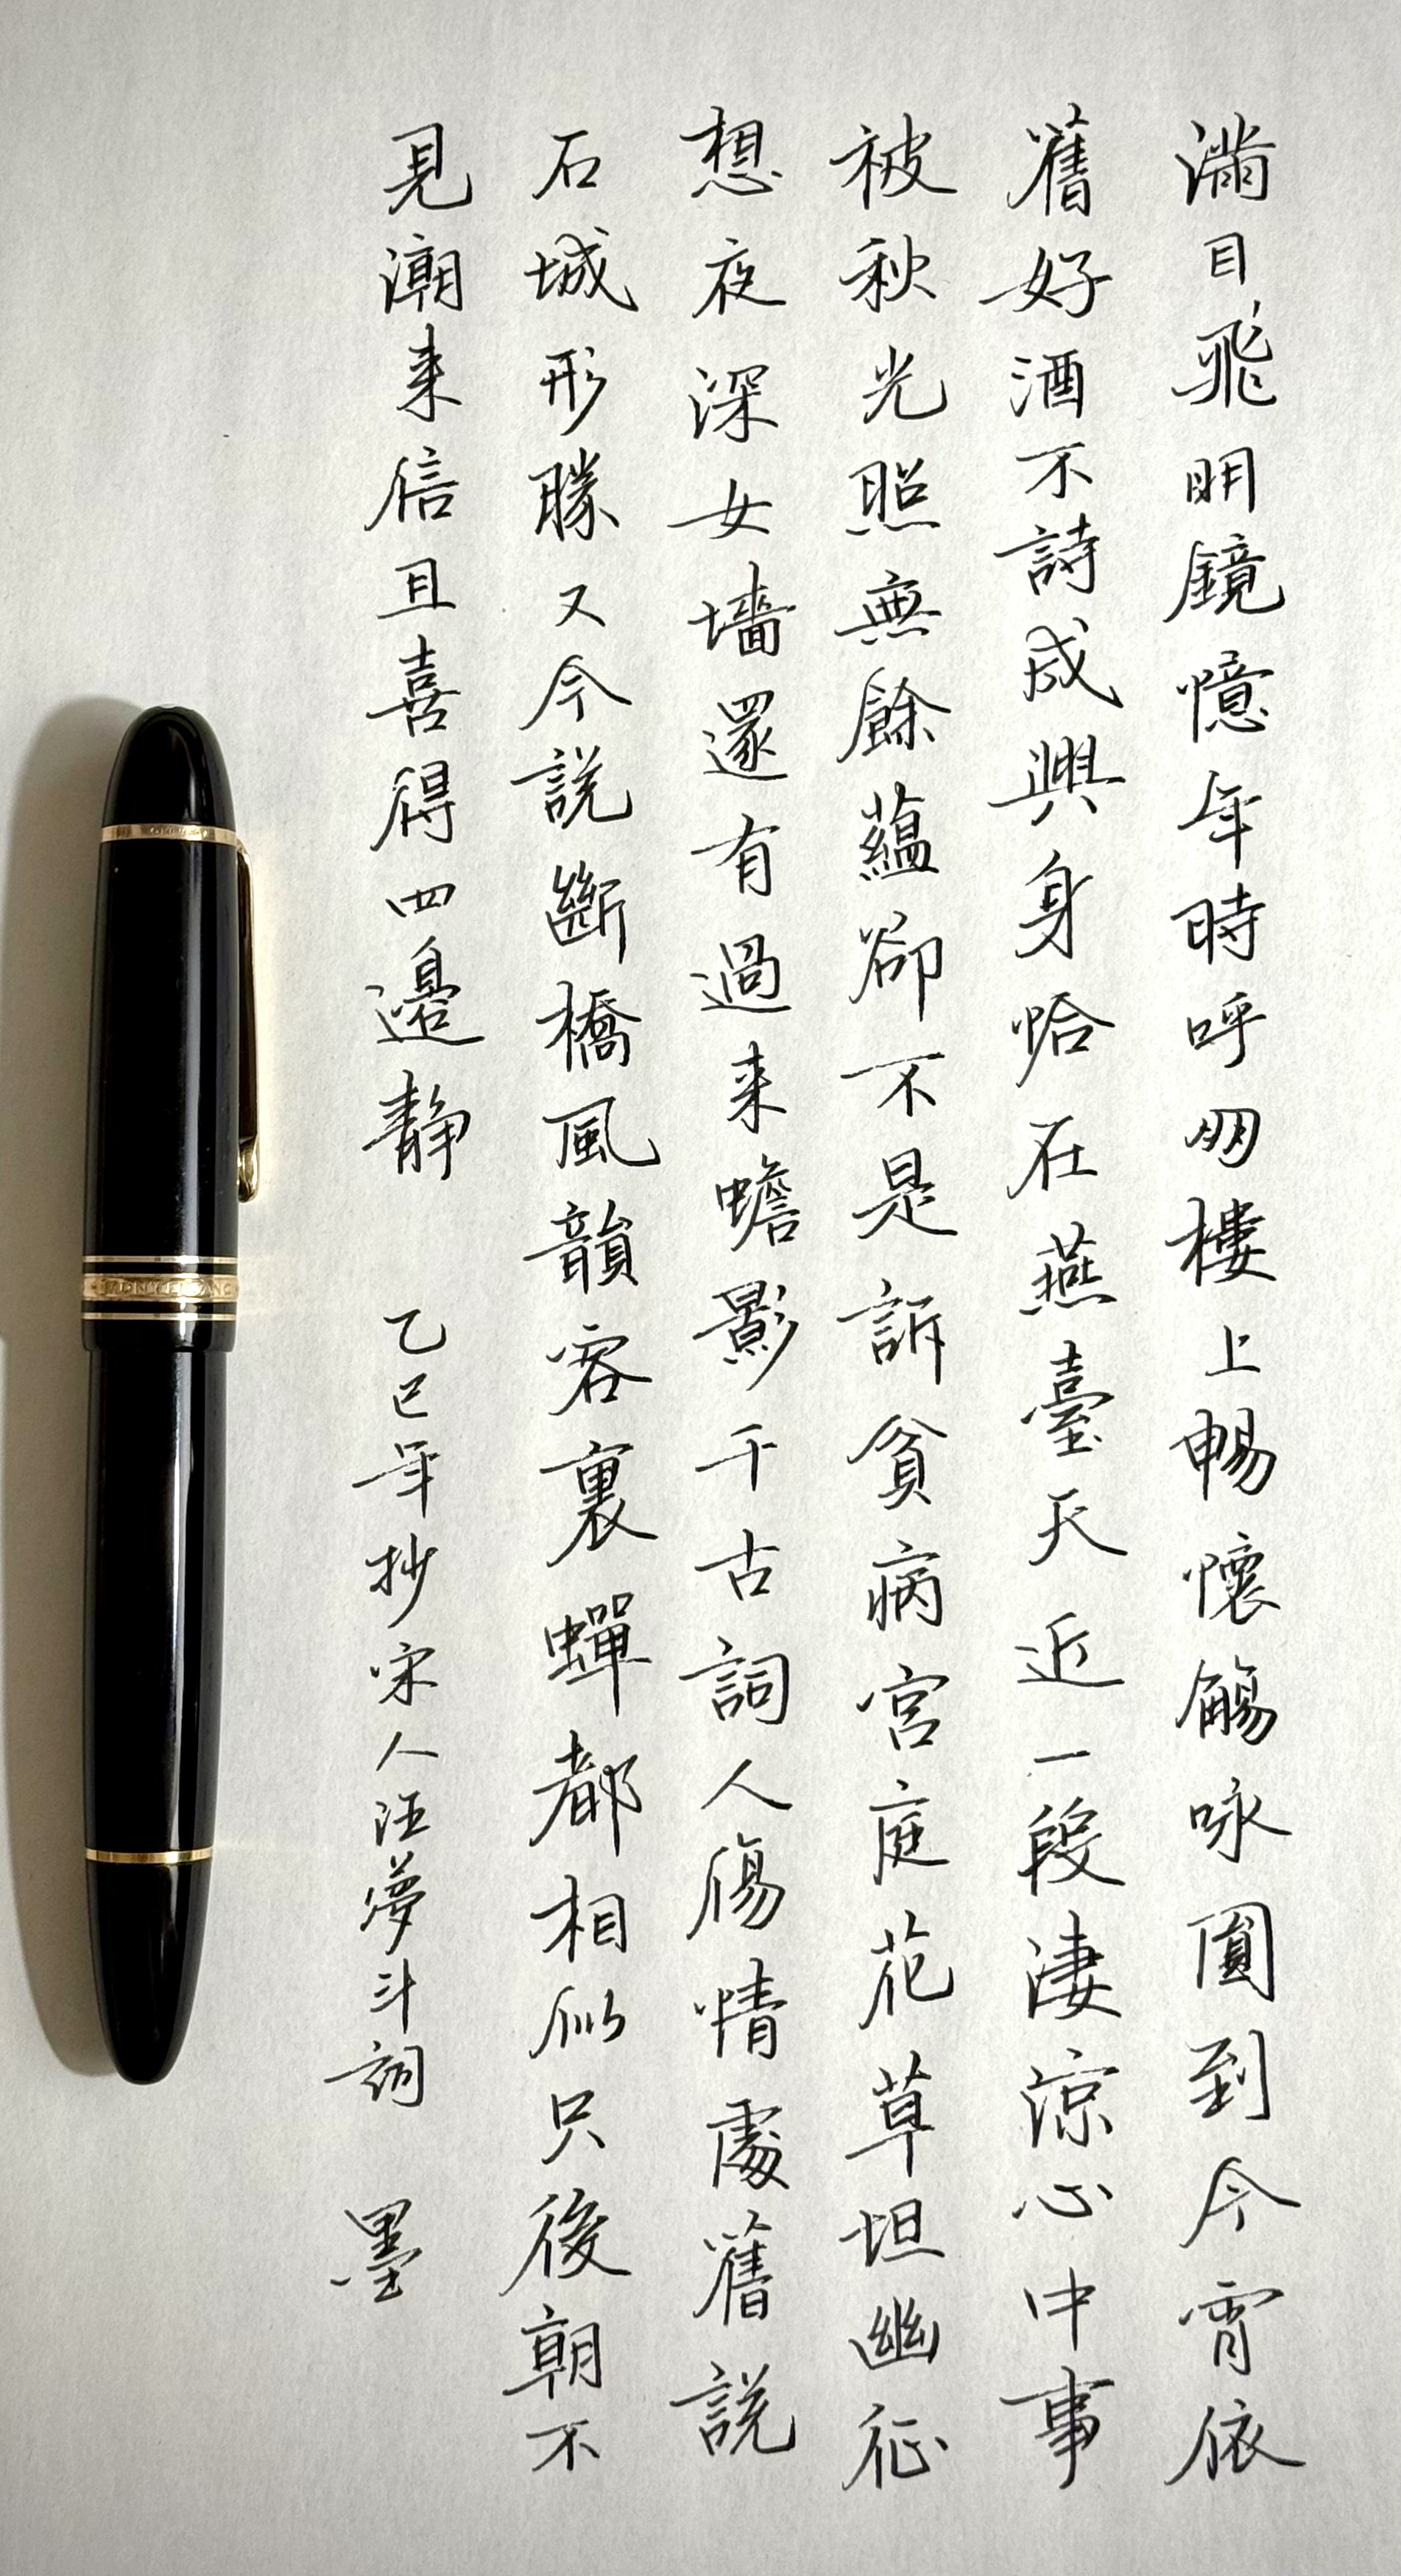 滿目飛明鏡憶年時呼朋樓上暢懷觴咏圓到今宵依
舊好酒不詩成興身恰在燕臺天近一段淒涼心中事
被秋光照無餘蘊卻不是訴貧病宮庭花草坦幽征
想夜深女墻還有過来蟾影千古詞人傷情處舊說
石城形勝又今說斷橋風韻容裏蟬都相似只後朝不
見潮来信且喜得四邊静 乙巳年抄宋人汪夢斗詞 墨